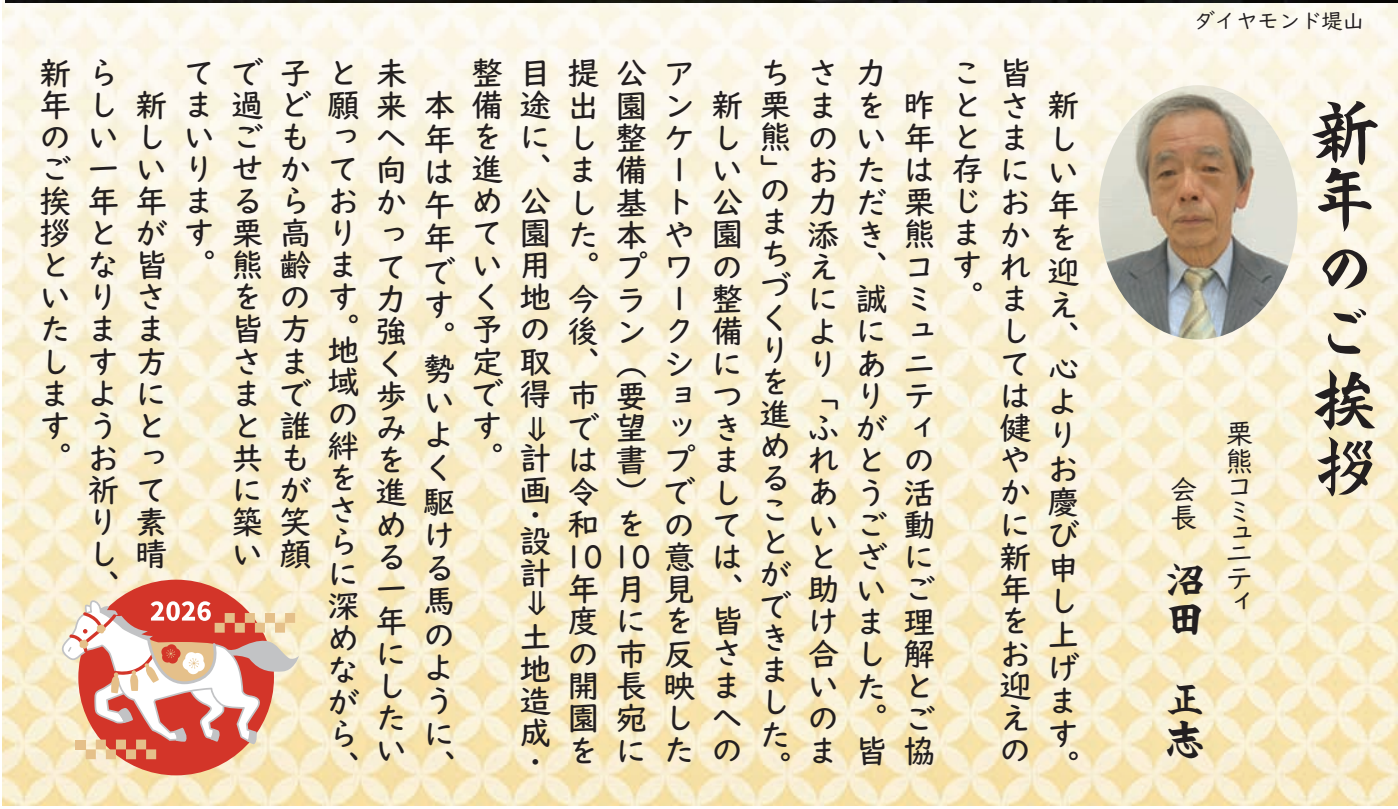 ダイヤモンド堤山
新年のご挨拶
栗熊コミュニティ
会長 沼田 正志
新しい年を迎え、心よりお慶び申し上げます。
皆さまにおかれましては健やかに新年をお迎えの
ことと存じます。
昨年は栗熊コミュニティの活動にご理解とご協
力をいただき、誠にありがとうございました。皆
さまのお力添えにより「ふれあいと助け合いのま
ち栗熊」のまちづくりを進めることができました。
新しい公園の整備につきましては、皆さまへの
アンケートやワークショップでの意見を反映した
公園整備基本プラン（要望書）を10月に市長宛に
提出しました。今後、市では令和10年度の開園を
目途に、公園用地の取得⇒計画・設計⇒土地造成・
整備を進めていく予定です。
本年は午年です。勢いよく駆ける馬のように、
未来へ向かって力強く歩みを進める一年にしたい
と願っております。地域の絆をさらに深めながら、
子どもから高齢の方まで誰もが笑顔
で過ごせる栗熊を皆さまと共に築い
てまいります。
新しい年が皆さま方にとって素晴
らしい一年となりますようお祈りし、
新年のご挨拶といたします。
2026